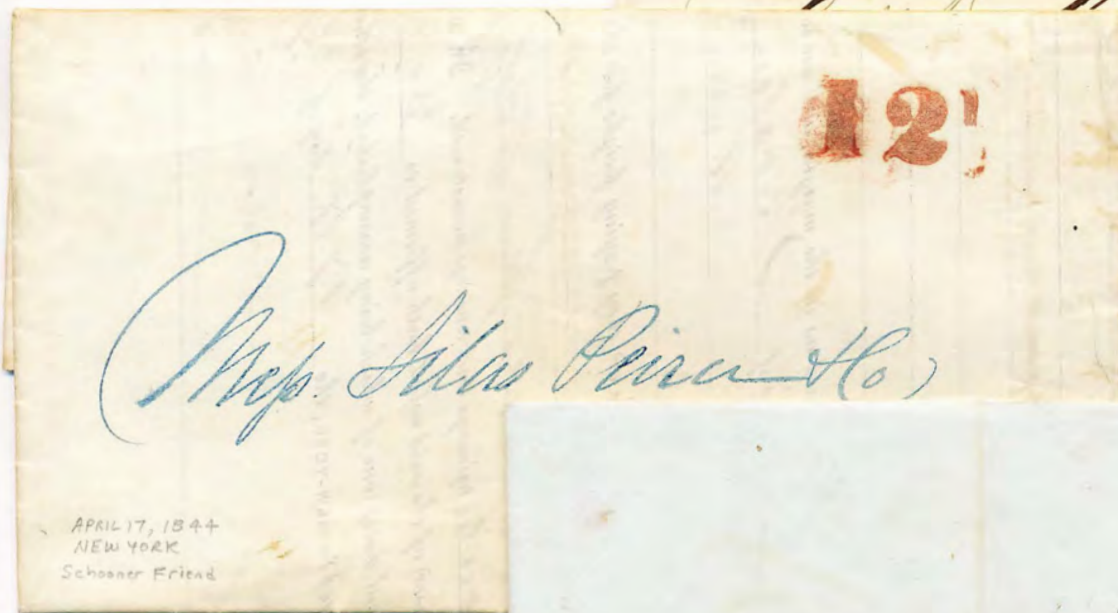 12½
Mess. Silas Peirce & Co
APRIL 17, 1844
NEW YORK
Schooner Friend